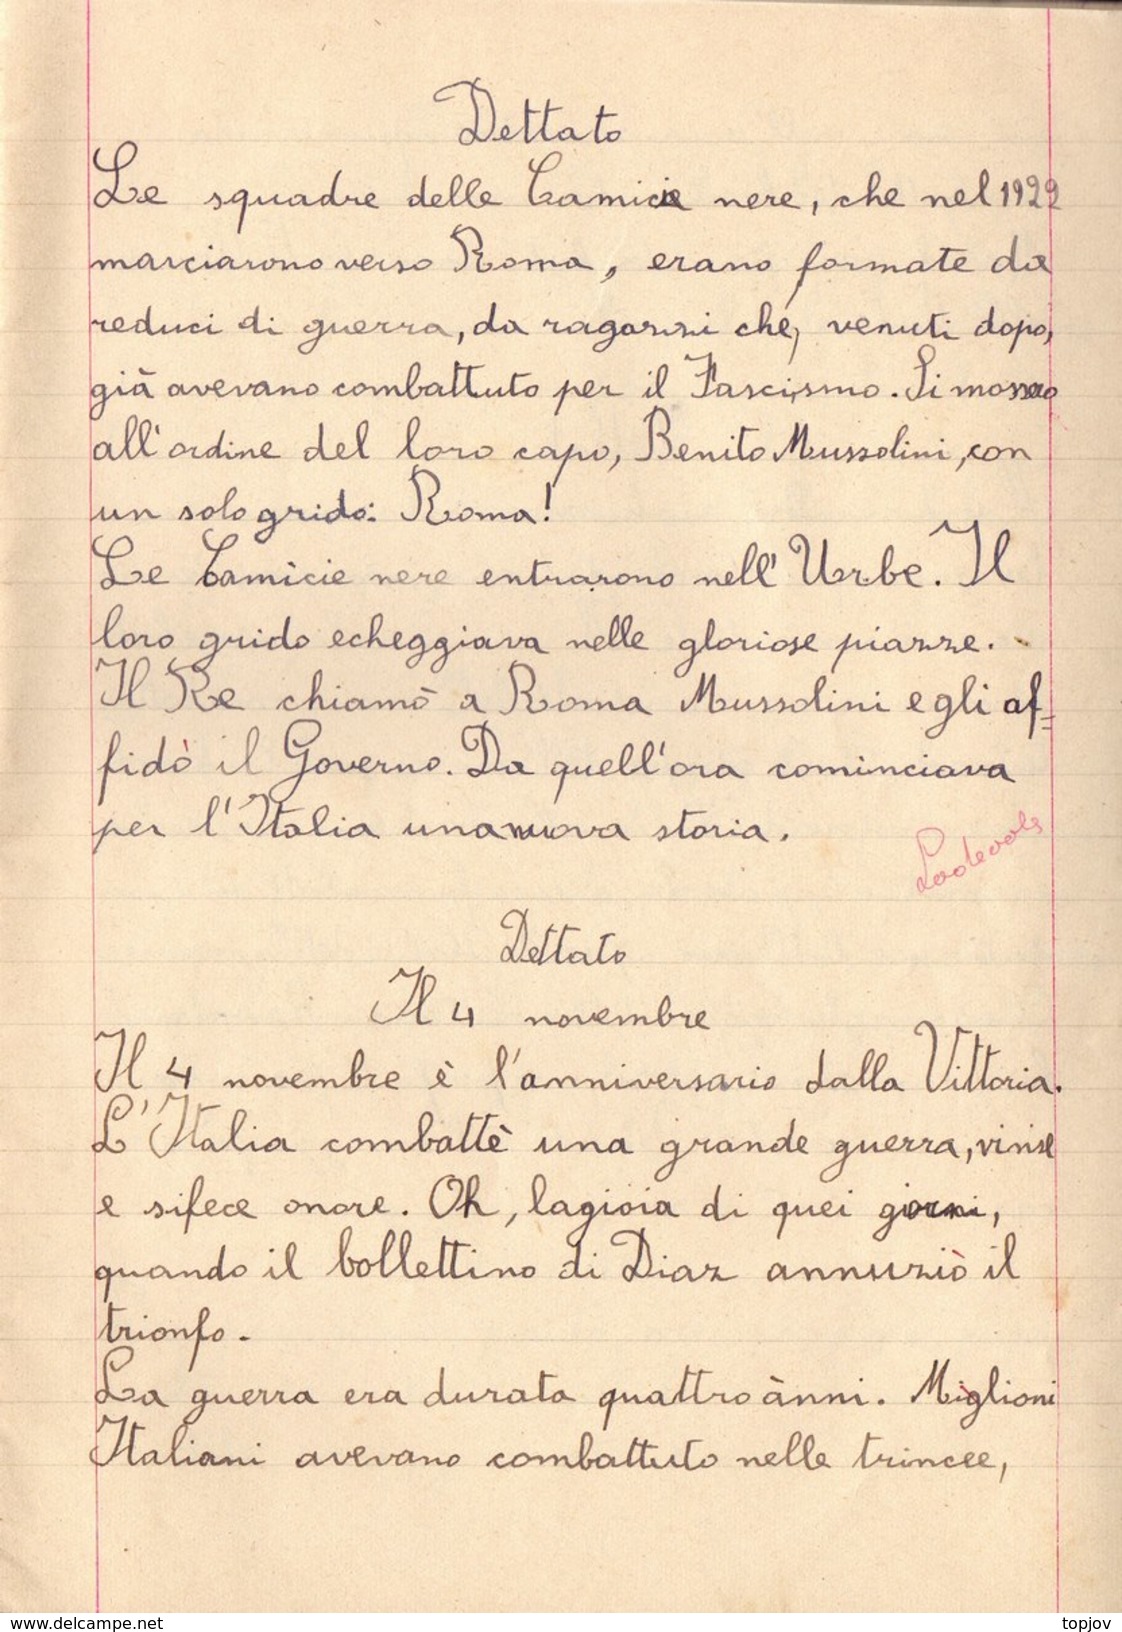 Dettato
Le squadre delle Camicie nere, che nel 1922
marciarono verso Roma, erano formate da
reduci di guerra, da ragazzi che, venuti dopo,
già avevano combattuto per il Fascismo. Si mossero
all'ordine del loro capo, Benito Mussolini, con
un solo grido: Roma!
Le Camicie nere entrarono nell'Urbe. Il
loro grido echeggiava nelle gloriose piazze.
Il Re chiamò a Roma Mussolini e gli af=
fidò il Governo. Da quell'ora cominciava
per l'Italia una nuova storia.
Lodevole
Dettato
Il 4 novembre
Il 4 novembre è l'anniversario dalla Vittoria.
L'Italia combattè una grande guerra, vinse
e si fece onore. Oh, la gioia di quei giorni,
quando il bollettino di Diaz annuziò il
trionfo.
La guerra era durata quattro anni. Miglioni
Italiani avevano combattuto nelle trincee,
www.delcampe.net
topjov